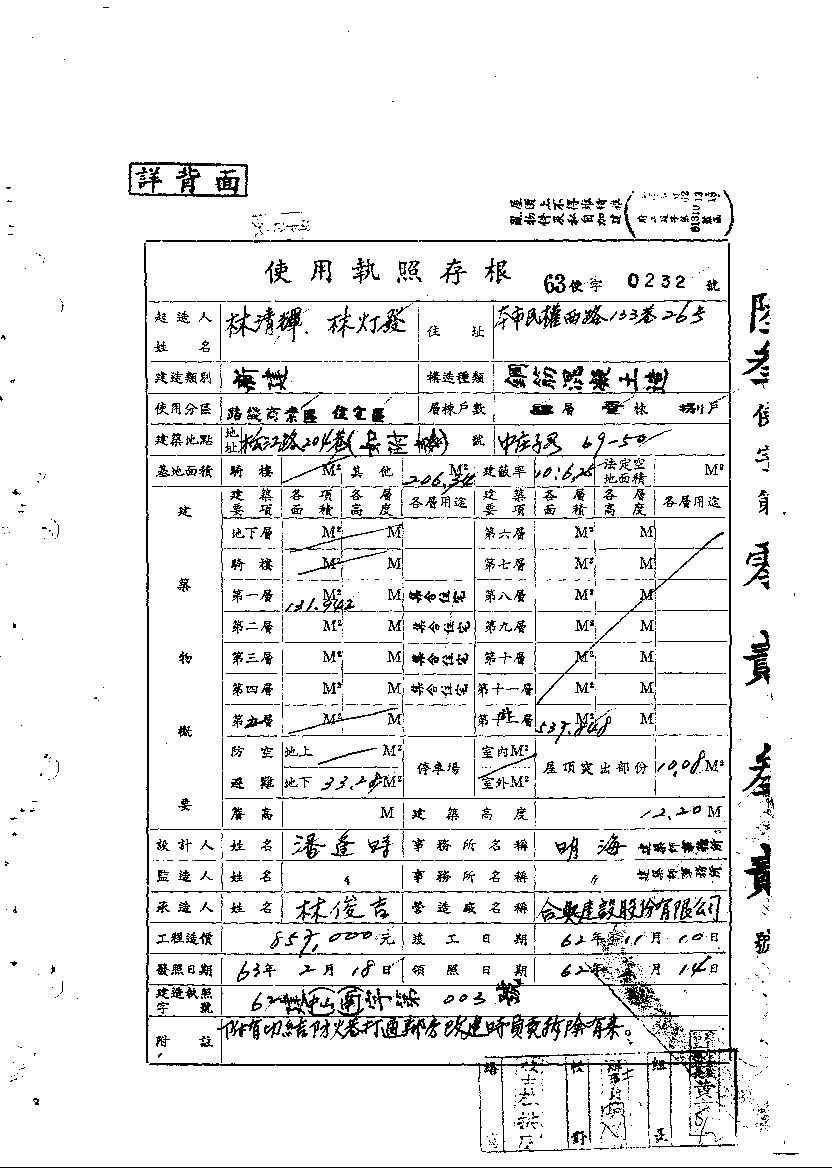 詳背面
使用執照存根 63使字 0232 號
起造人姓名 林清輝、林灯發 住址 本市民權西路133巷26号
建造類別 新建 構造種類 鋼筋混凝土造
使用分區 路線商業區 住宅區 層棟戶數 層 壹棟 捌戶
建築地點 地址 松江路204巷 號 中庄子 69-50
基地面積 騎樓 M² 其他 206.34 M² 建蔽率 10:6.25 法定空地面積 M²
建築物概要 建築要項 各項面積 各層高度 各層用途 建築要項 各層面積 各層高度 各層用途
地下層 M² M 第六層 M² M
騎樓 M² M 第七層 M² M
第一層 131.942 M² M 集合住宅 第八層 M² M
第二層 M² M 集合住宅 第九層 M² M
第三層 M² M 集合住宅 第十層 M² M
第四層 M² M 集合住宅 第十一層 M² M
第五層 M² M 第十層 537.848 M² M
防空避難 地上 M² 停車場 室內M² 屋頂突出部份 10.08 M²
地下 33.28 M² 室外M²
簷高 M 建築高度 12.20 M
設計人 姓名 潘逢時 事務所名稱 明海 建築師事務所
監造人 姓名 〃 事務所名稱 〃 建築師事務所
承造人 姓名 林俊吉 營造廠名稱 合興建設股份有限公司
工程造價 857,000元 竣工日期 62年11月10日
發照日期 63年2月18日 領照日期 62年 月14日
建造執照字號 62 建(中山)(南)字第 003 號
附註 附有切結防火巷打通部份改建時負責拆除有案。
陸叁使字第零貳叁貳號